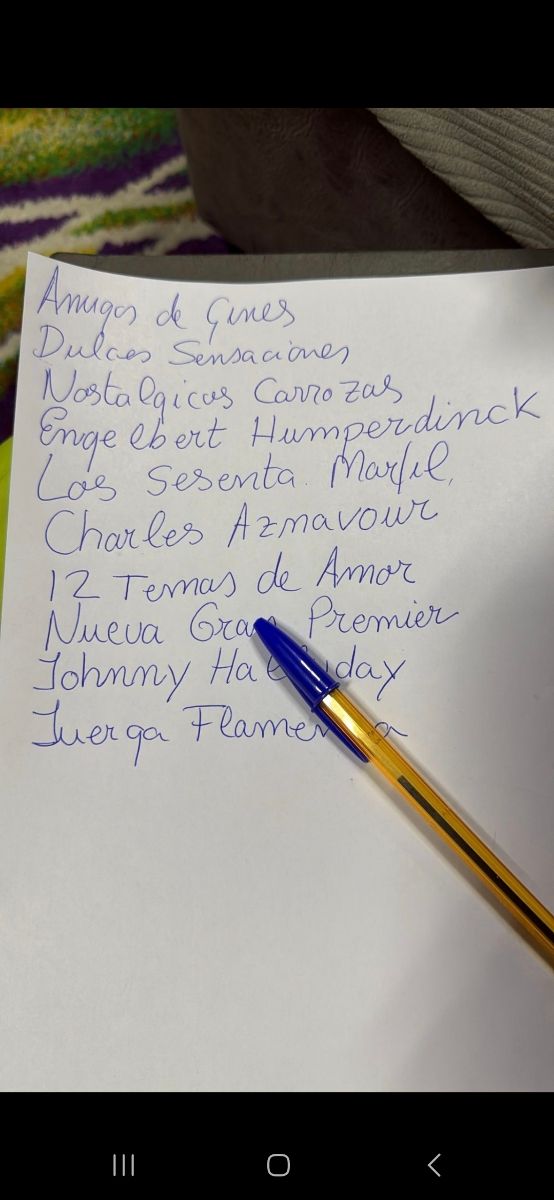 Amigos de Gines
Dulces Sensaciones
Nostalgicos Carrozas
Engelbert Humperdinck
Los Sesenta. Marfil.
Charles Aznavour
12 Temas de Amor
Nueva Gran Premier
Johnny Hallyday
Juerga Flamenca